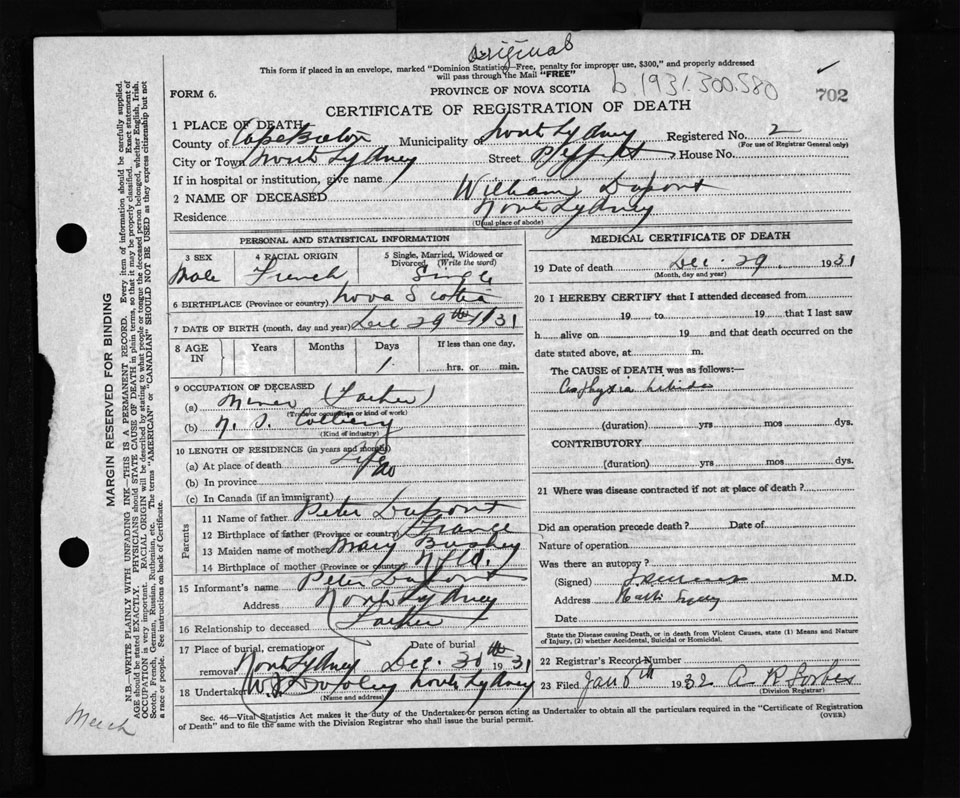 Original
This form if placed in an envelope, marked "Dominion Statistics—Free, penalty for improper use, $300," and properly addressed
will pass through the Mail "FREE"
PROVINCE OF NOVA SCOTIA b.1931.300.580
FORM 6. 702
CERTIFICATE OF REGISTRATION OF DEATH
1 PLACE OF DEATH
County of Cape Breton Municipality of North Sydney Registered No. 2
(For use of Registrar General only)
City or Town North Sydney Street House No.
If in hospital or institution, give name
2 NAME OF DECEASED William Dupont
Residence North Sydney
(Usual place of abode)
PERSONAL AND STATISTICAL INFORMATION
3 SEX 4 RACIAL ORIGIN 5 Single, Married, Widowed or
Divorced. (Write the word)
Male French Single
6 BIRTHPLACE (Province or country) Nova Scotia
7 DATE OF BIRTH (month, day and year) Dec 29th 1931
8 AGE IN Years Months Days If less than one day,
1 hrs. or min.
9 OCCUPATION OF DECEASED
(a) Miner (Father)
(Trade or occupation or kind of work)
(b) N. S. Colliery
(Kind of industry)
10 LENGTH OF RESIDENCE (in years and months)
(a) At place of death Life
(b) In province do
(c) In Canada (if an immigrant)
Parents
11 Name of father Peter Dupont
12 Birthplace of father (Province or country) France
13 Maiden name of mother Mary
14 Birthplace of mother (Province or country) Nfld.
15 Informant's name Peter Dupont
Address North Sydney
16 Relationship to deceased Father
17 Place of burial, cremation or removal Date of burial
North Sydney Dec. 30th 1931
18 Undertaker W. J. Dooley North Sydney
(Name and address)
MEDICAL CERTIFICATE OF DEATH
19 Date of death Dec. 29. 1931
(Month, day and year)
20 I HEREBY CERTIFY that I attended deceased from
19 to 19 that I last saw
h alive on 19 and that death occurred on
date stated above, at m.
The CAUSE of DEATH was as follows:—
Asphyxia
(duration) yrs mos dys.
CONTRIBUTORY
(duration) yrs mos dys.
21 Where was disease contracted if not at place of death?
Did an operation precede death? Date of
Nature of operation
Was there an autopsy?
(Signed) M.D.
Address North Sydney
Date
State the Disease causing Death, or in death from Violent Causes, state (1) Means and Nature
of Injury, (2) whether Accidental, Suicidal or Homicidal.
22 Registrar's Record Number
23 Filed Jan 8th 1932 A R Forbes
(Division Registrar)
Sec. 46—Vital Statistics Act makes it the duty of the Undertaker or person acting as Undertaker to obtain all the particulars required in the "Certificate of Registration
of Death" and to file the same with the Division Registrar who shall issue the burial permit. (OVER)
MARGIN RESERVED FOR BINDING
N.B.—WRITE PLAINLY WITH UNFADING INK—THIS IS A PERMANENT RECORD. Every item of information should be carefully supplied.
AGE should be stated EXACTLY. PHYSICIANS should STATE CAUSE OF DEATH in plain terms, so that it may be properly classified. Exact statement of
OCCUPATION is very important. RACIAL ORIGIN will be described by stating to what people or tongue the deceased person belonged, whether English, Irish,
Scotch, French, German, Russian, Ruthenian, etc. The terms "AMERICAN" or "CANADIAN" SHOULD NOT BE USED as they express citizenship but not
a race or people. See instructions on back of Certificate.